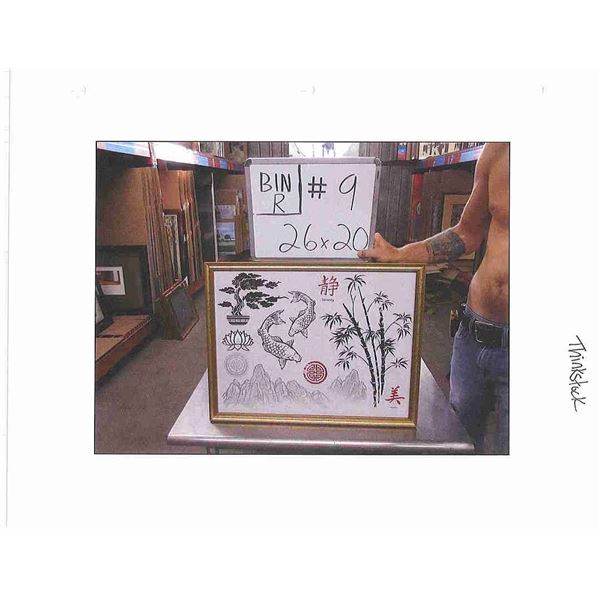 BIN
R
# 9
26x20
静
Serenity
美
Thinkstock